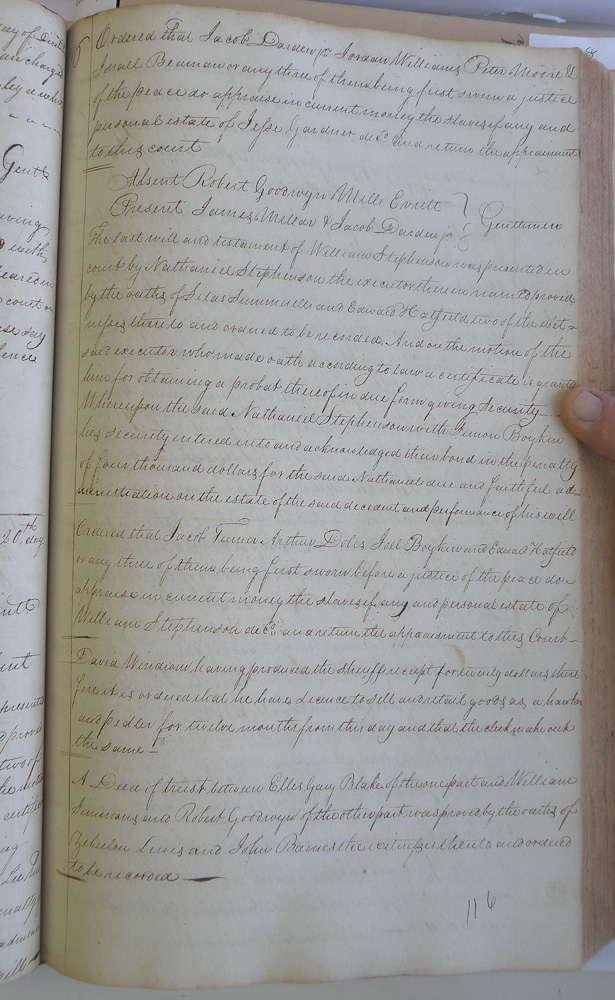 Ordered that Jacob Darden jr Jordan Williams Peter Moore &
Israell Beaman or any three of them being first sworn a justice
of the peace do appraise in current money the slaves if any and
personal estate of Jesse Gardner decd and return the appraisment
to this court
Absent Robert Goodwyn Mills Everitt
Present James Millar & Jacob Darden jr Gentlemen
The last will and testament of William Stephenson was presented in
court by Nathaniel Stephenson the executor therein named proved
by the oaths of Silas Summerells and Edward Hatfield two of the wit=
nesses thereto and ordered to be recorded And on the motion of the
said executor who made oath according to law a certificate is granted
him for obtaining a probat thereof in due form giving security
Whereupon the said Nathaniel Stephenson with Simon Boykin
his security entered into and acknowledged their bond in the penalty
of four thousand dollars for the said Nathaniels due and faithful ad=
ministration on the estate of the said decedent and performance of his will
Ordered that Jacob Turner Arthur Doles Joel Boykin and Edward Hatfield
or any three of them being first sworn before a justice of the peace do
appraise in current money the slaves if any and personal estate of
William Stephenson decd. and return the appraisment to this Court
David Windiam having produced the sheriff receipt for twenty dollars there
fore it is ordered that he have Licence to sell and retail goods as a hawker
and pedler for twelve months from this day and that the clerk make out
the same
A Deed of trust between Elles Gary Blake of the one part and William
Simmons and Robert Goodwyn of the other part was proved by the oaths of
Zebulon Lewis and John Barnes the witnesses thereto and ordered
to be recorded
116
20th day
Gent